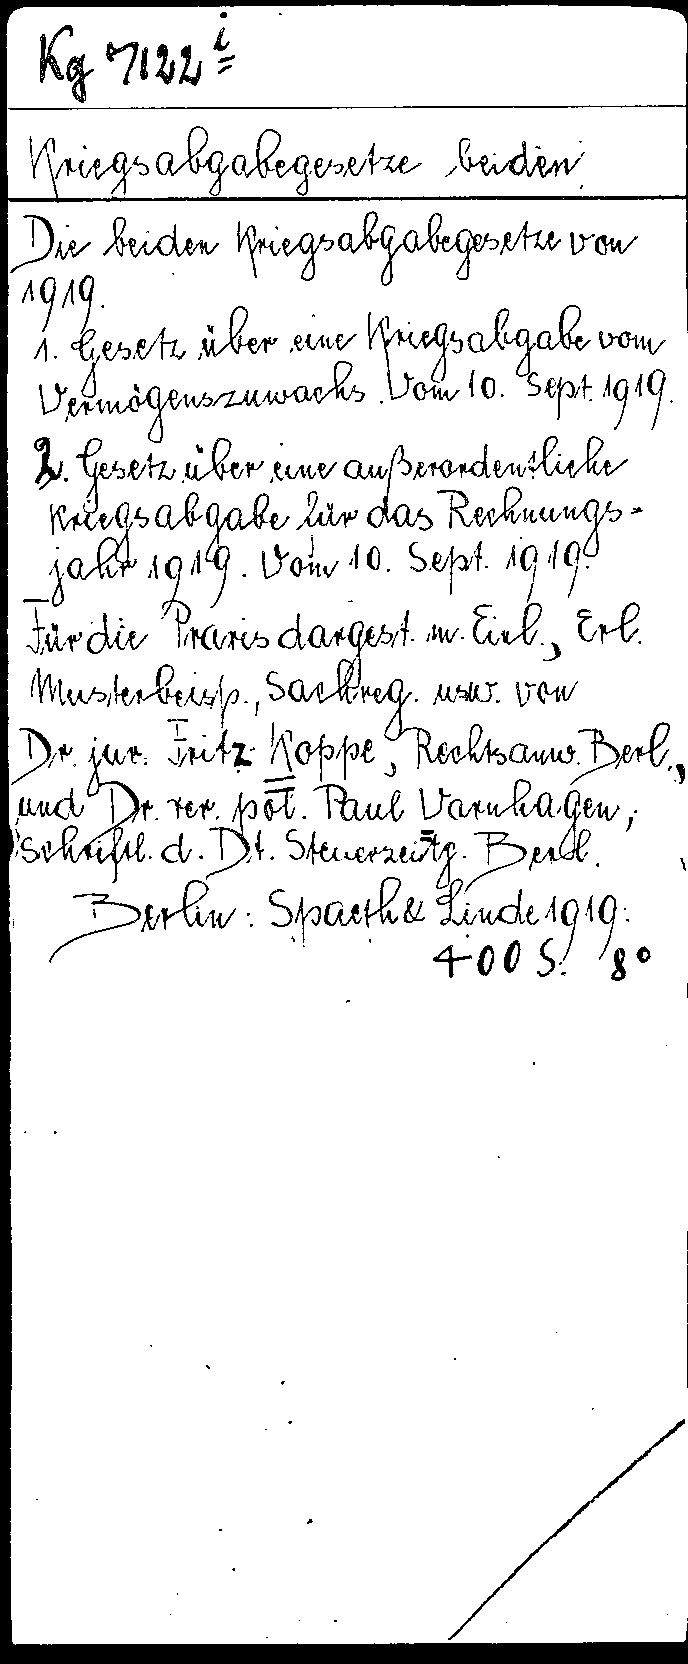 Kg 7122 i
Kriegsabgabegesetze beiden
Die beiden Kriegsabgabegesetze von
1919.
1. Gesetz über eine Kriegsabgabe vom
Vermögenszuwachs. Vom 10. Sept. 1919.
2. Gesetz über eine außerordentliche
Kriegsabgabe für das Rechnungs-
jahr 1919. Vom 10. Sept. 1919.
Für die Praxis dargest. m. Einl., Erl.
Musterbeisp., Sachreg. usw. von
Dr. jur. Fritz Koppe, Rechtsanw. Berl.,
und Dr. rer. pol. Paul Varnhagen,
Schriftl. d. Dt. Steuerzeitg. Berl.
Berlin: Spaeth & Linde 1919.
400 S. 8°